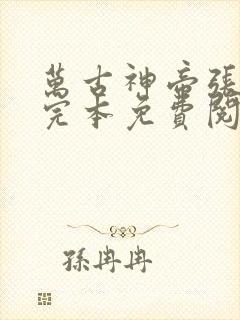 萬古神帝張
完本免費閱
孫冉冉